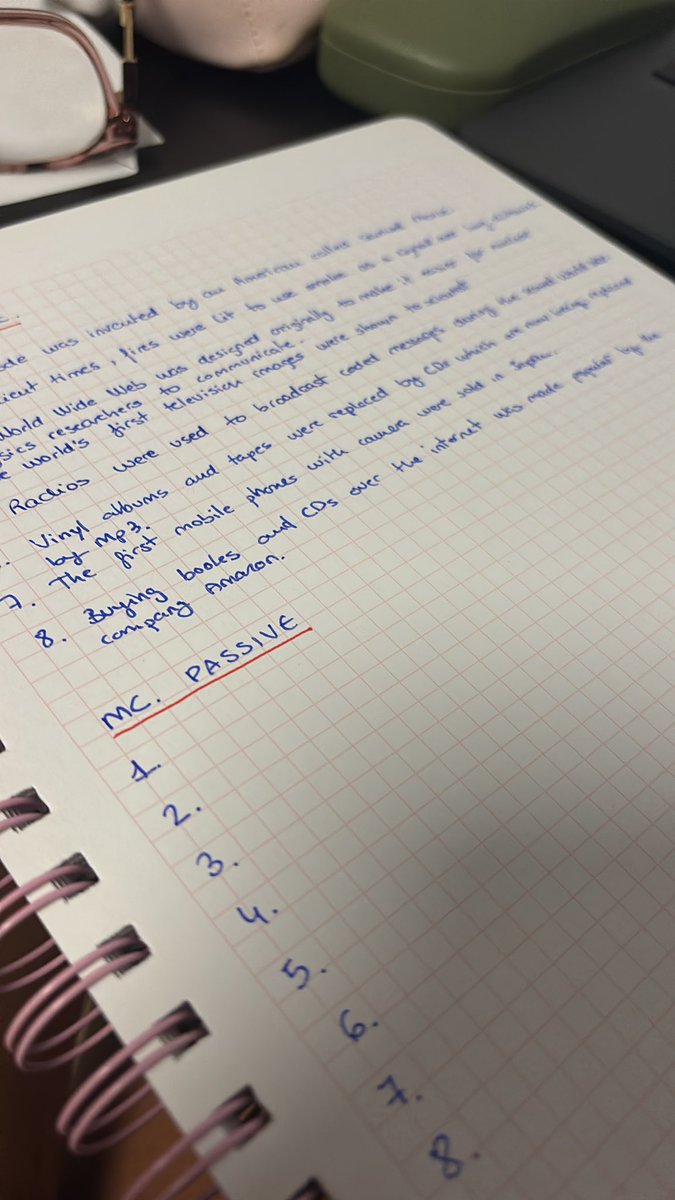 was invented by an American called Samuel Morse.
times, fires were lit to use smoke as a signal over long distances
World Wide Web was designed originally to make it easier for nuclear
researchers to communicate.
world's first television images were shown to scientists
Radios were used to broadcast coded messages during the second world war.
Vinyl albums and tapes were replaced by CDs which are now being replaced
by Mp3.
7. The first mobile phones with camera were sold in Japan.
8. Buying books and CDs over the internet was made popular by the
company Amazon.
MC. PASSIVE
1.
2.
3.
4.
5.
6.
7.
8.